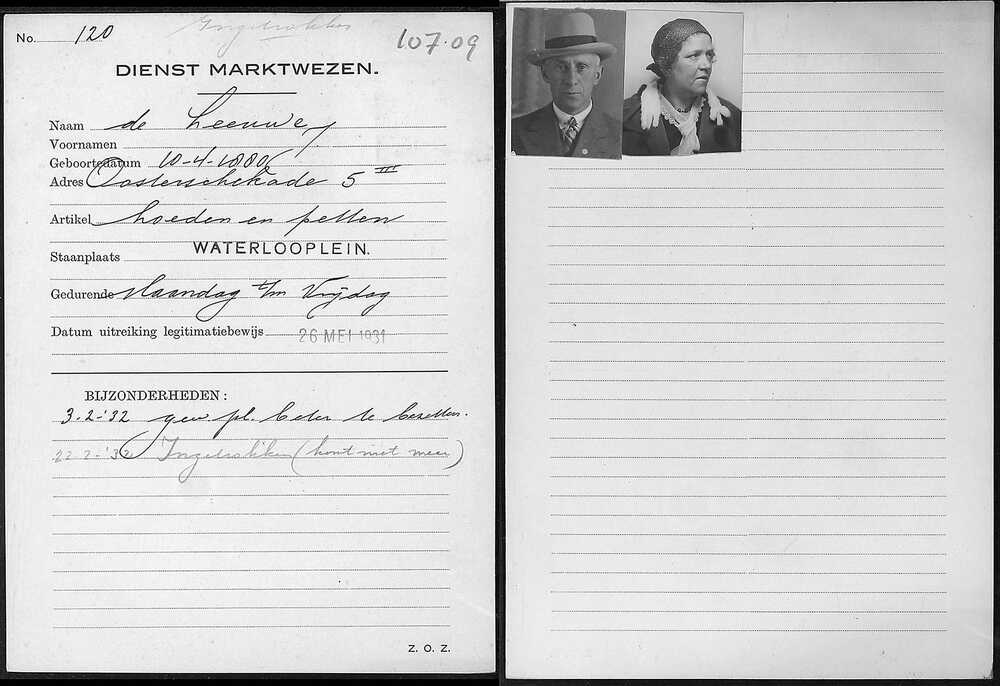 Ingetrokken
No. 120
107.09
DIENST MARKTWEZEN.
Naam de Leeuwe,
Voornamen
Geboortedatum 10-4-1880
Adres Oosterschekade 5 III
Artikel hoeden en petten
WATERLOOPLEIN.
Staanplaats
Gedurende Maandag t/m Vrijdag
Datum uitreiking legitimatiebewijs 26 MEI 1931
BIJZONDERHEDEN:
3-2-'32 gew. pl. beter te bezetten.
22-2-'32 Ingetrokken (komt niet meer)
Z. O. Z.